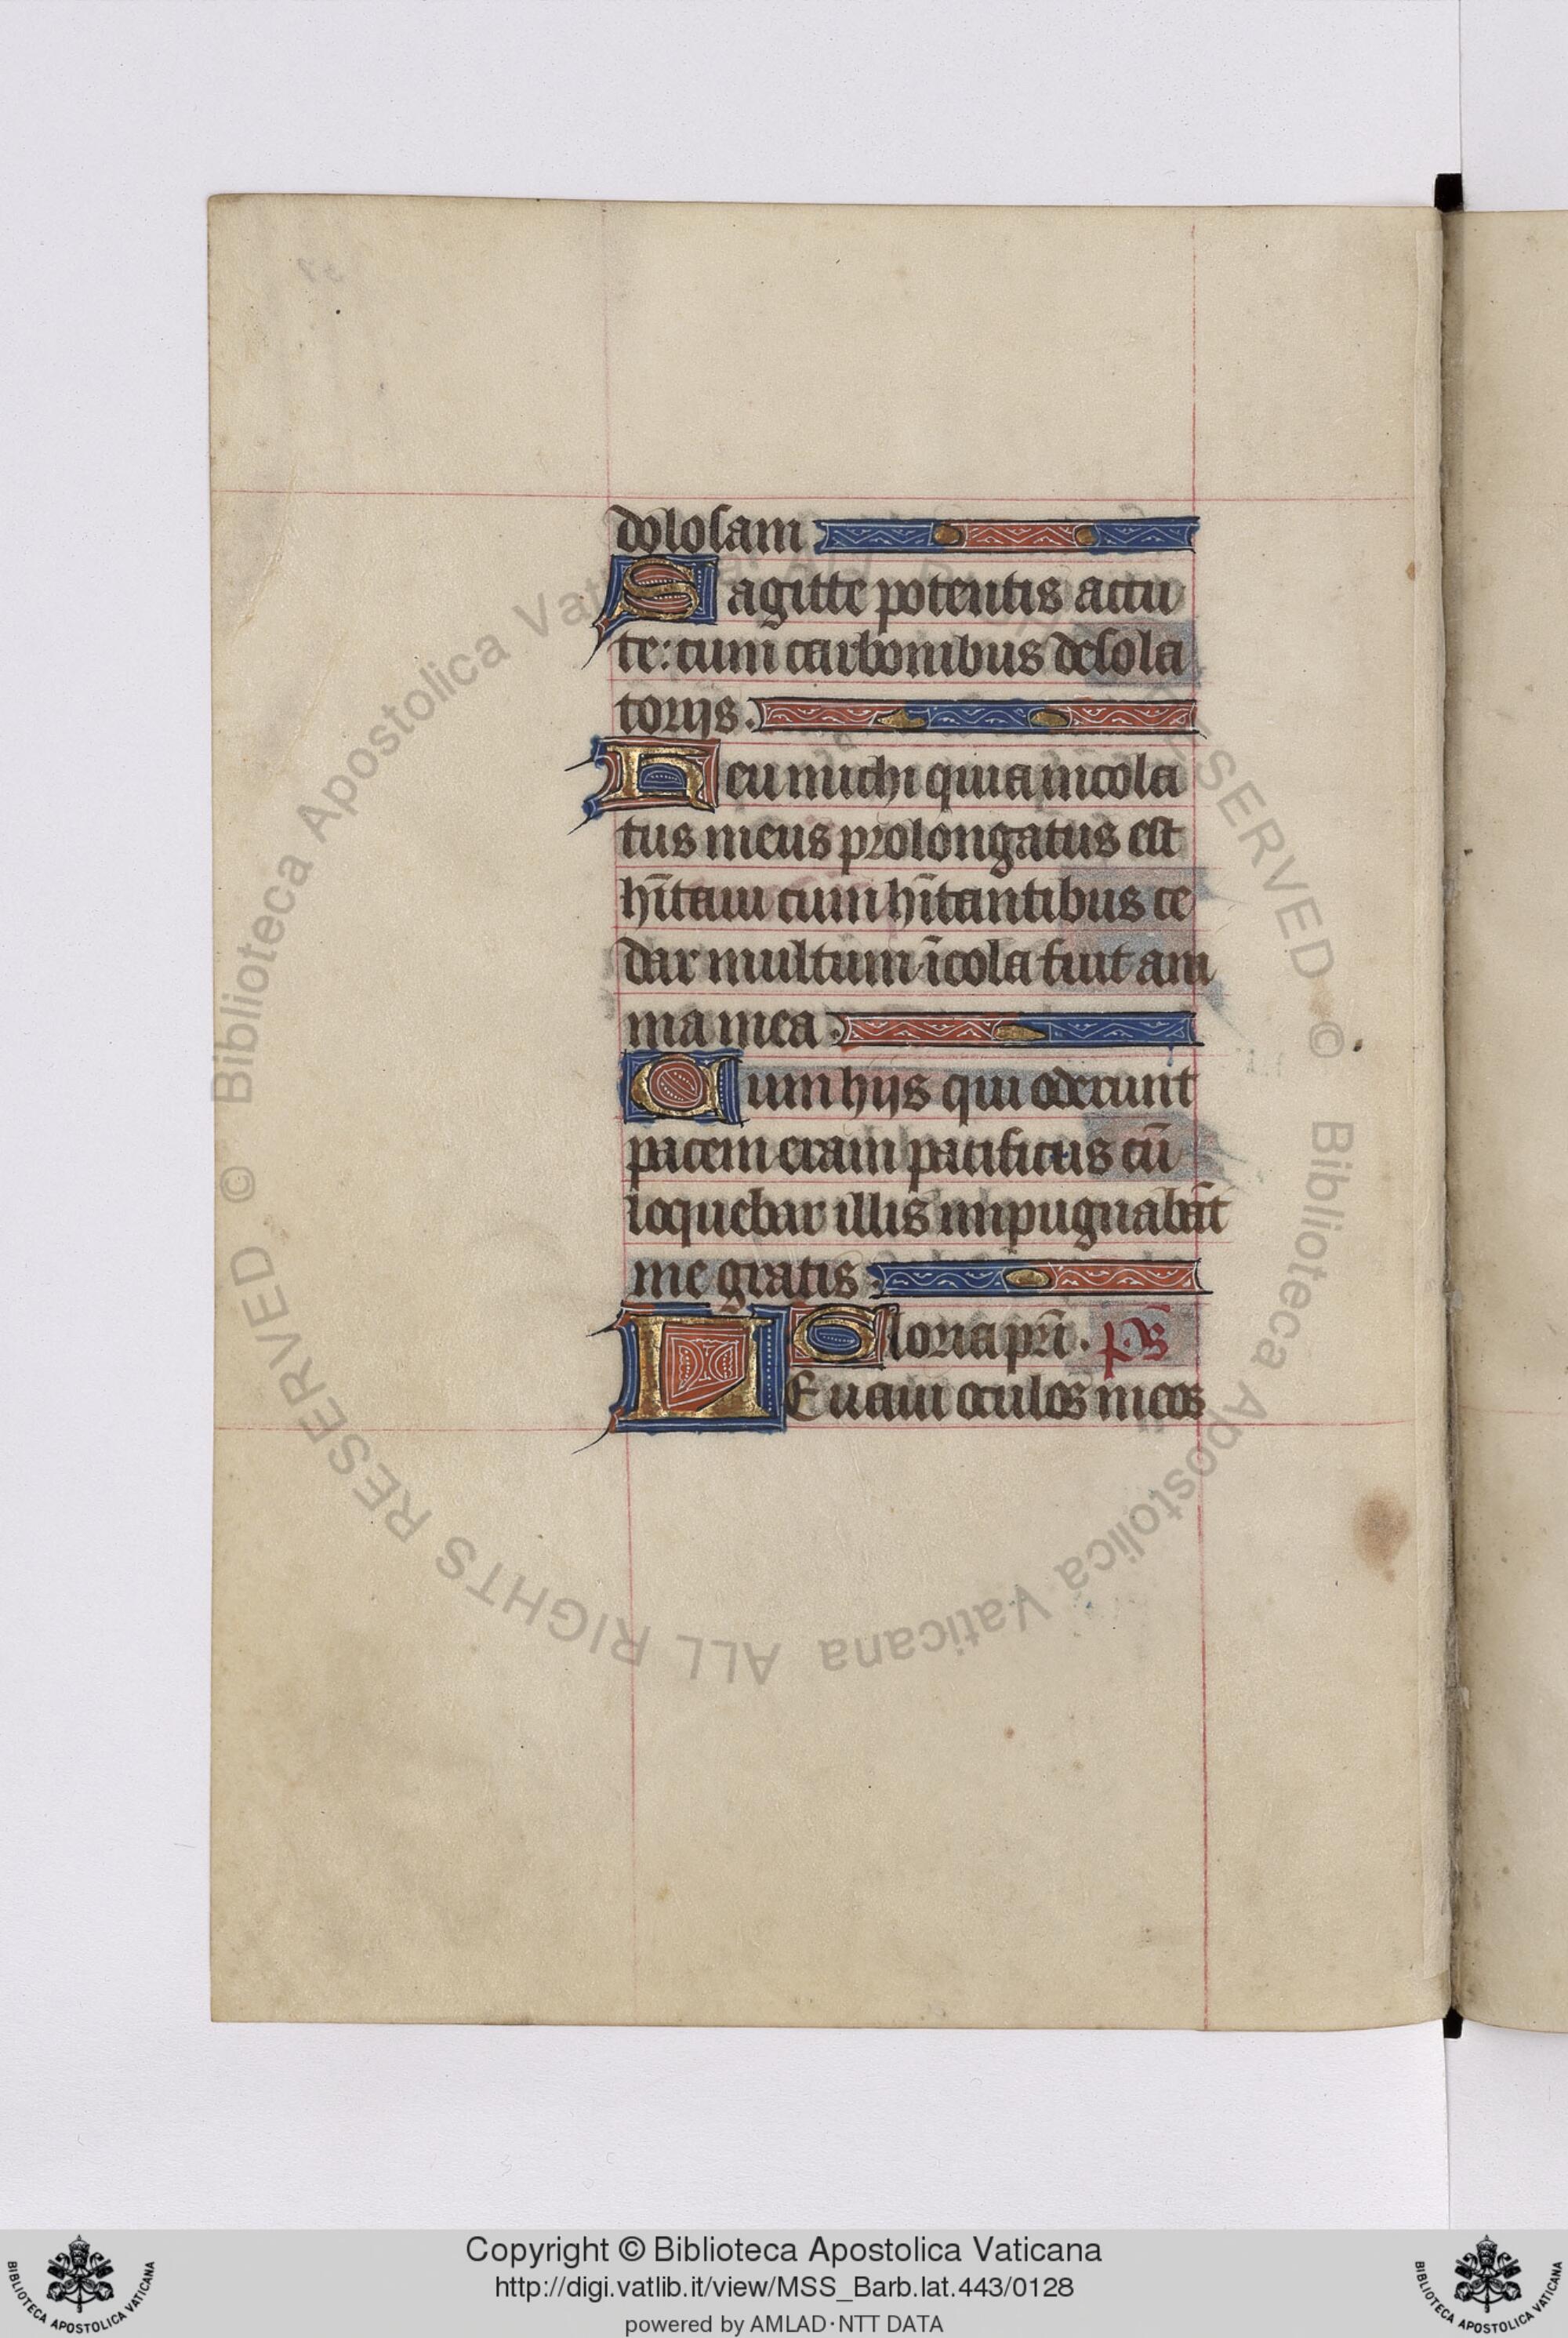 dolosam
Sagitte potentis accu
te: cum carbonibus desola
torijs.
Heu michi quia incola
tus meus prolongatus est
hītaui cum hītantibus ce
dar multum īcola fuit ani
ma mea.
Cum hijs qui oderunt
pacem eram pacificus cū
loquebar illis impugnabāt
me gratis.
Gloria pr̄i. p̄s
LEuaui oculos meos
© Biblioteca Apostolica Vaticana ALL RIGHTS RESERVED
© Biblioteca Apostolica Vaticana ALL RIGHTS RESERVED
Copyright © Biblioteca Apostolica Vaticana
http://digi.vatlib.it/view/MSS_Barb.lat.443/0128
powered by AMLAD·NTT DATA
BIBLIOTECA APOSTOLICA VATICANA
BIBLIOTECA APOSTOLICA VATICANA